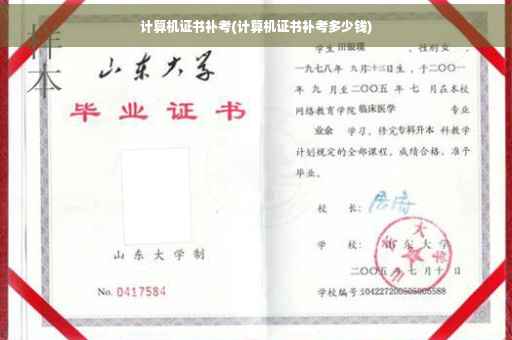 计算机证书补考(计算机证书补考多少钱)
样本
山东大学
毕业证书
山东大学制
No. 0417584
学生
一九七八年 九月十三日生，于二〇〇一
年 九 月至二〇〇五 年 七 月在本校
网络教育学院 临床医学 专业
业余 学习，修完专科升本 科教学
计划规定的全部课程，成绩合格，准予
毕业。
校 长：
学 校：山东大学
二〇〇五 年 七 月 十 日
学校编号: